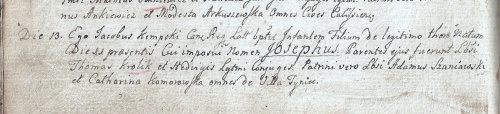 nus Ankiewicz et Modesta Arkuszewska Omnes Cives Calisienses
Die 13. Ego Jacobus Kempski Can: Reg: Latt: bptis Infantem Filium de legitimo thoro Natum
Die 11 præsentis Cui imposui Nomen Josephus. Parentes ejus fuerunt Lbsi
Thomas Krolik et Hedvigis Lgtmi Conjuges. Patrini vero Lbsi Adamus Szaniawski
et Catharina Komorowska omnes de Villa Tyniec.